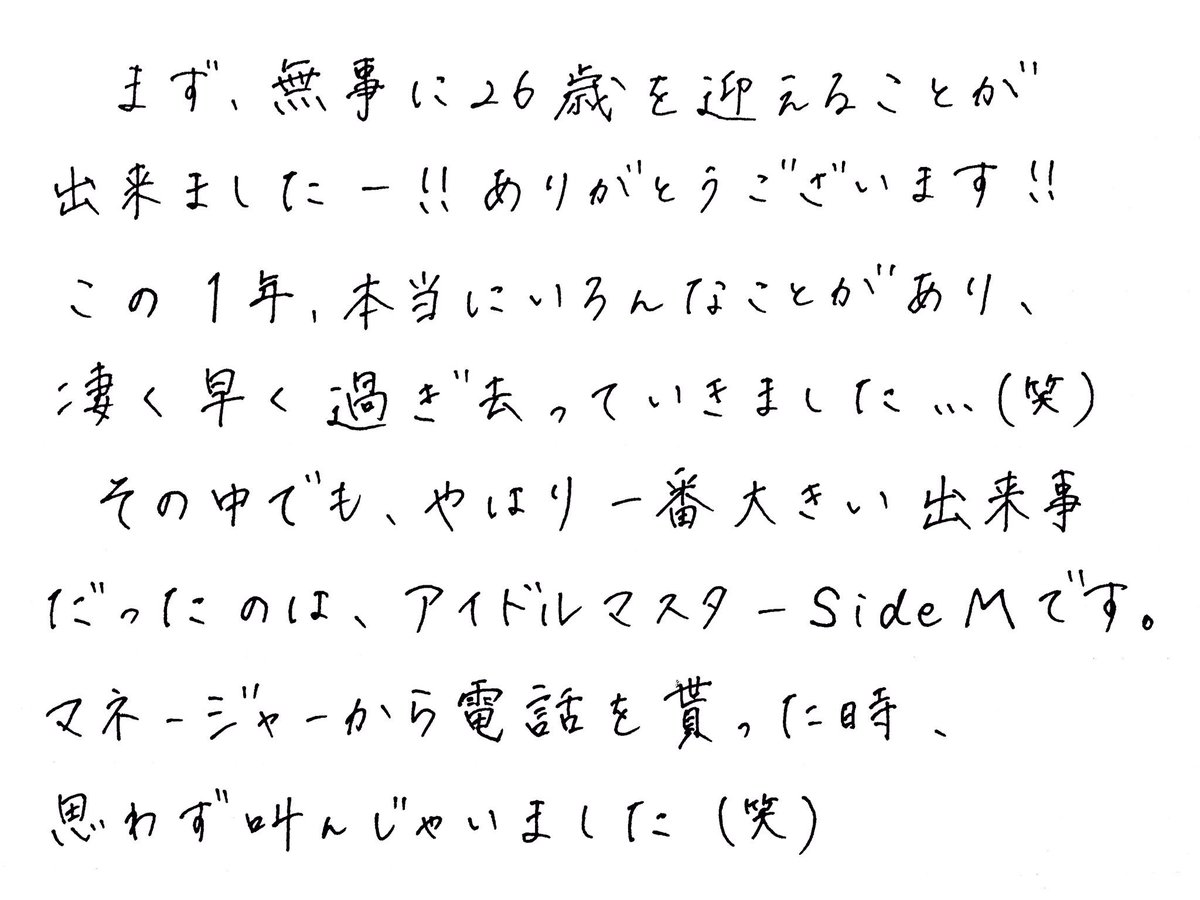 まず、無事に26歳を迎えることが
出来ましたー!!ありがとうございます!!
この1年、本当にいろんなことがあり、
凄く早く過ぎ去っていきました…(笑)
その中でも、やはり一番大きい出来事
だったのは、アイドルマスターSideMです。
マネージャーから電話を貰った時、
思わず叫んじゃいました(笑)